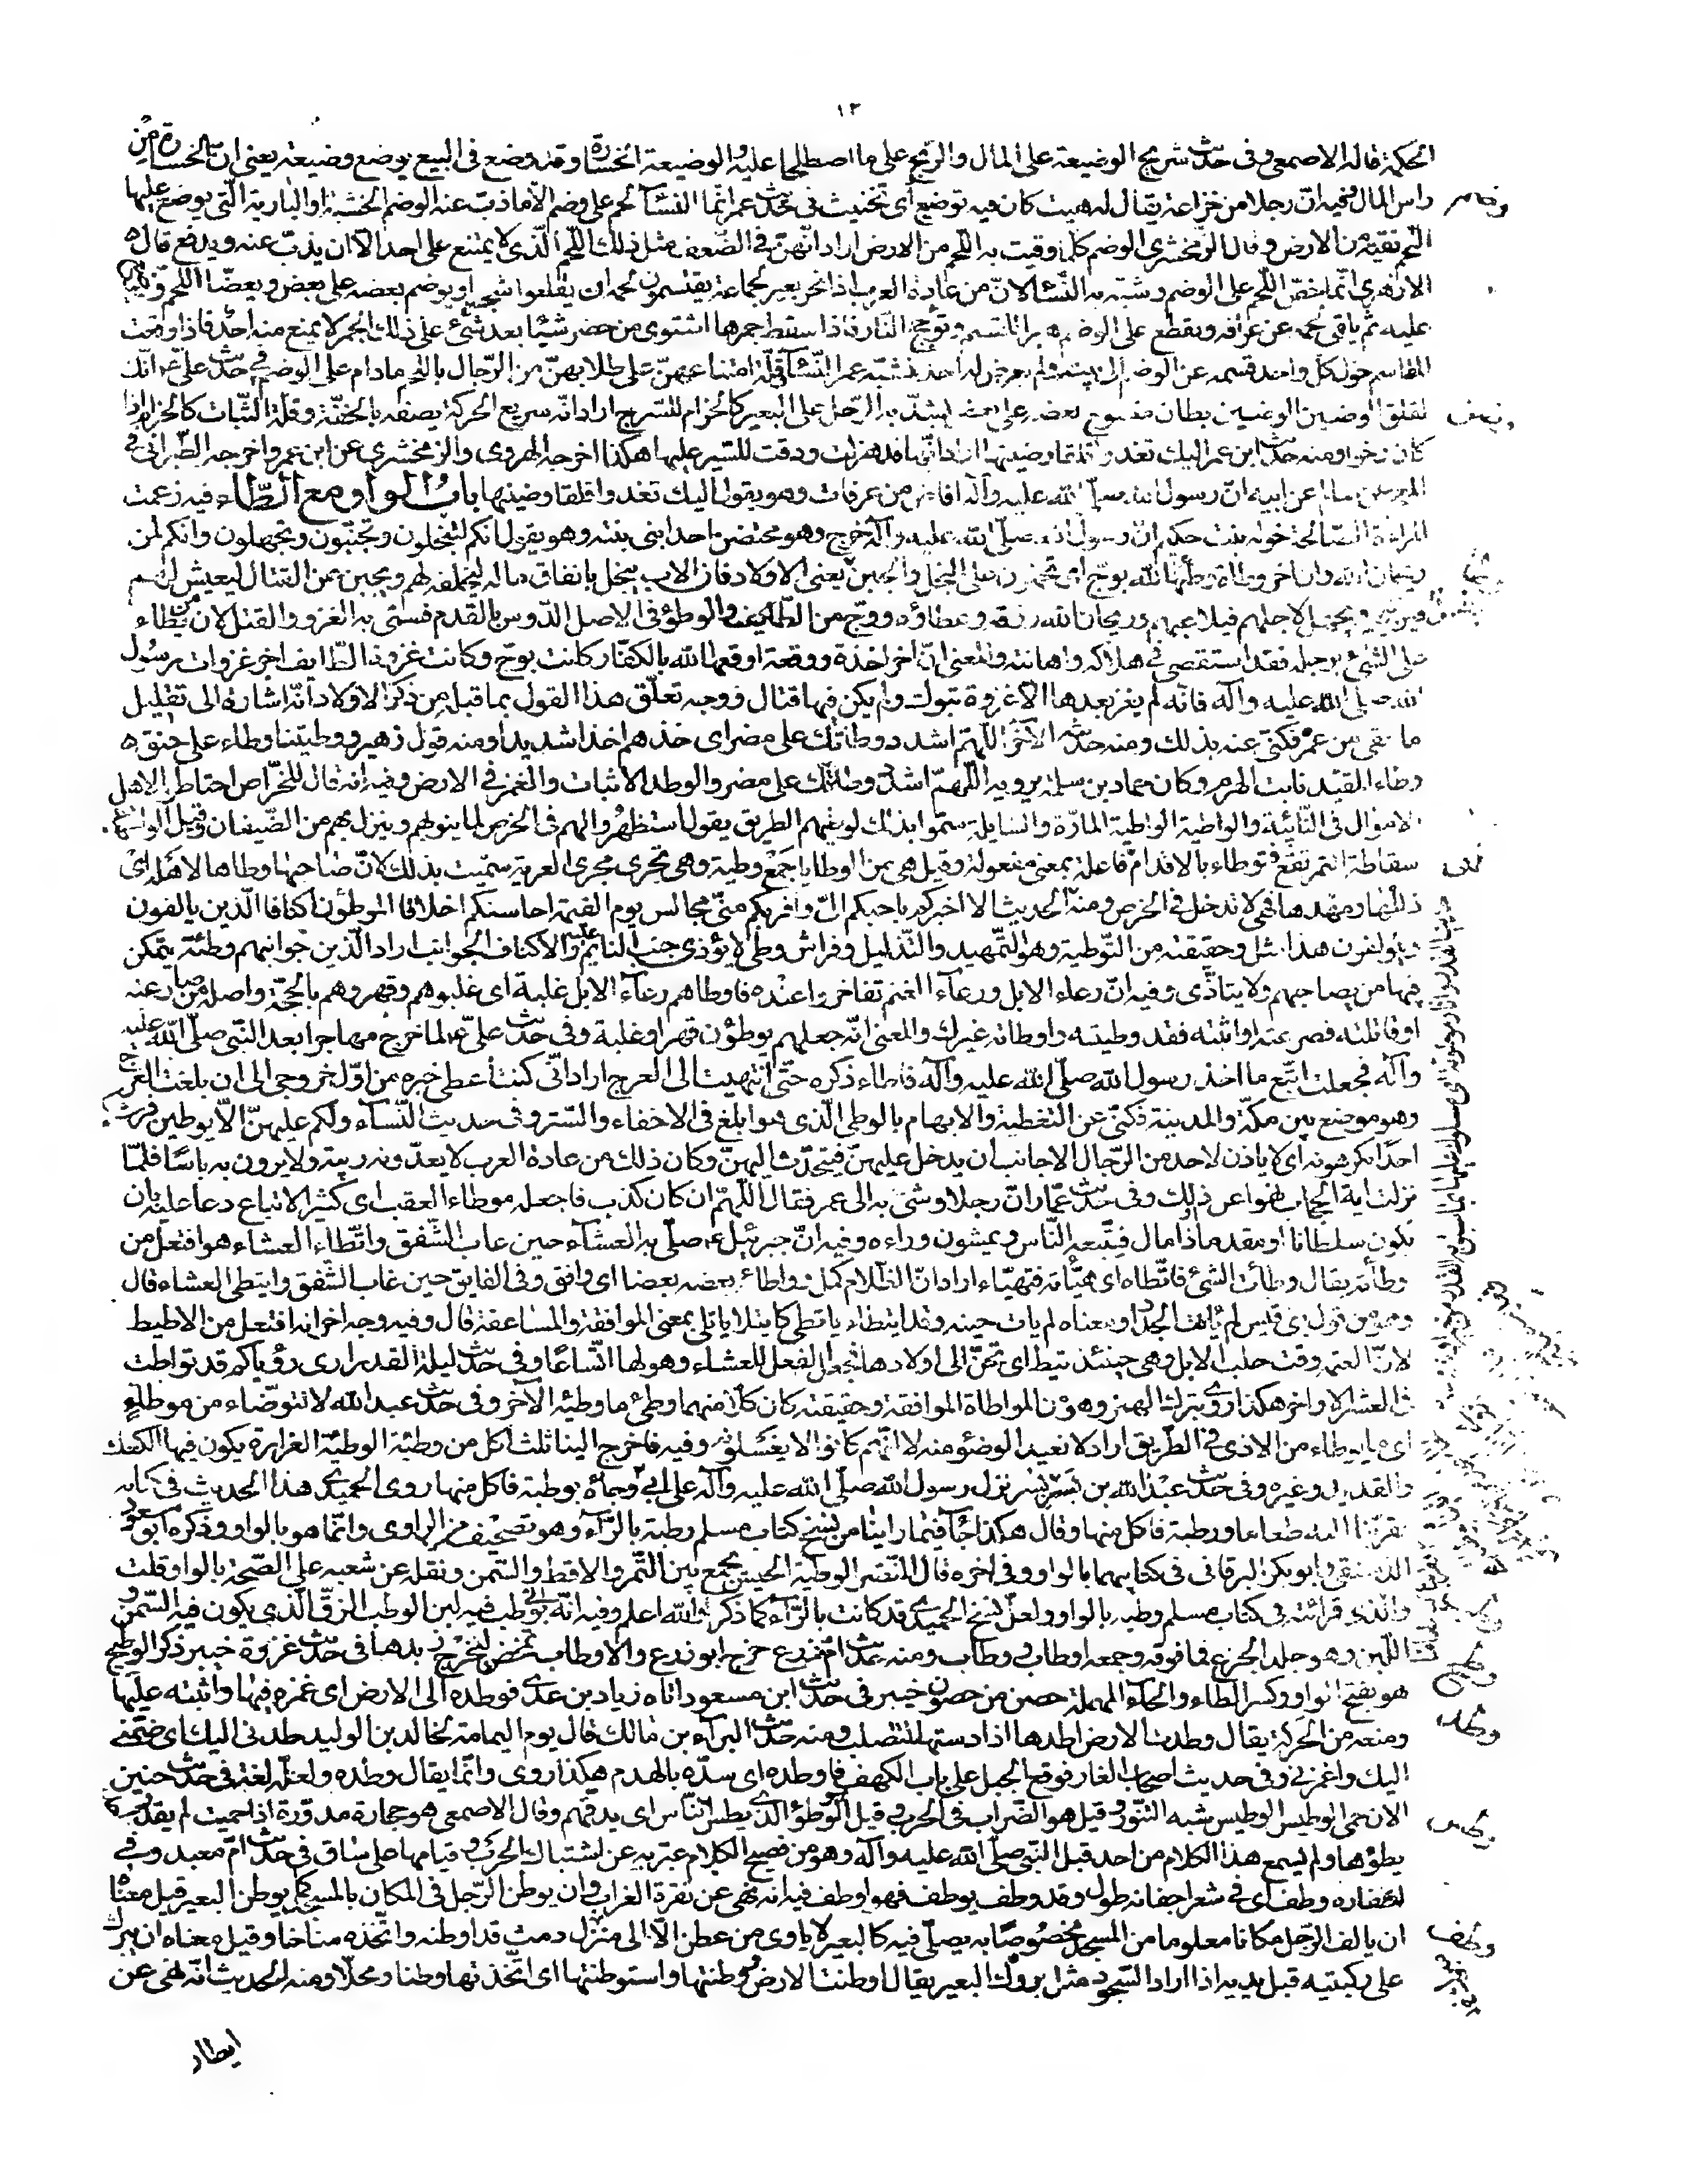 ١٣
الحكمة قاله الاصمعي وفي حدث شريح الوضيعة على المال والربح على ما اصطلحا عليه الوضيعة الخسارة وقد وضع في البيع يوضع وضيعة يعني ان الخسارة من
راس المال وفيه ان رجلا من خزاعة يقال له هيت كان فيه توضيع اى تخنيث في حدث عمر انما النساء لحم على وضم الا ماذب عنه الوضم الخشبة او البارية التى يوضع عليها
اللحم تقيه من الارض وقال الزمخشري الوضم كلما وقيت به اللحم من الارض اراد انهن في الضعف مثل ذلك اللحم الذى لا يمتنع على احد الا ان يذب عنه ويدفع قال
الازهرى انما خص اللحم على الوضم وشبه به النساء لان من عادة العرب اذا نحر بعير لجماعة يقتسمون لحمه ان يقلعوا شجرا ويوضم بعضه على بعض ويعضا اللحم ويلقى
عليه ثم ياقى لحمه عن عراقه ويقطع على الوضم هبرا للقسم وتوجج النار فاذا سقط جمرها اشتوى من حضر شيئا بعد شئ على ذلك الجمر لا يمنع منه احد فاذا وقعت
المقاسم حول كل واحد قسمه عن الوضم الى بيته ولم يعرض له احد فشبه عمر النساء وقلة امتناعهن على طلابهن من الرجال باللحم مادام على الوضم في حدث على انك
لقلق الوضين الوضين بطان منسوج بعضه على بعض يشد به الرحل على البعير كالحزام للسرج اراد انه سريع الحركة يصفه بالخفة وقلة الثبات كالحزام اذا
كان رخوا ومنه حدث ابن عمر اليك تغدو قلقا وضينها اراد انها قد هزلت ودقت للسير عليها هكذا اخرجه الهروى والزمخشري عن ابن عمر واخرجه الطبرانى في
المعجم عن سالم عن ابيه ان رسول الله صلى الله عليه وآله افاض من عرفات وهو يقول اليك تغدو اقلقا وضينها باب الواو مع الطاء فيه زعمت
المراءة الصالحة خوله بنت حكيم ان رسول الله صلى الله عليه وآله خرج وهو محتضن احد ابنى بنته وهو يقول انكم لتبخلون وتجبنون وتجهلون وانكم لمن
ريحان الله وان اخر وطاة وطئها الله بوج اى تحملون على البخل والجبن يعنى الاولاد فان الاب يبخل بانفاق ماله ليخلفه لهم ويجبن عن القتال ليعيش لهم
فيربيهم ويجهل لاجلهم فيلاعبهم وريحان الله رزقه وعطاؤه ووج من الطائف والوطؤ في الاصل الدوس بالقدم فسمى به الغزو والقتل لان من يطاء
على الشئ برجله فقد استقصى في هلاكه واهانته والمعنى ان اخر اخذة ووقعة اوقعها الله بالكفار كانت بوج وكانت غزوة الطايف اخر غزوات رسول
الله صلى الله عليه وآله فانه لم يغز بعدها الا غزوة تبوك ولم يكن فيها قتال ووجه تعلق هذا القول بما قبله من ذكر الاولاد انه اشارة الى تقليل
ما بقى من عمره فكنى عنه بذلك ومنه حدثه الآخر اللهم اشدد وطاتك على مضر اى خذهم اخذا شديدا ومنه قول زهير ووطئتنا وطاء على حنق
وطاء المقيد نابت الهرم وكان حماد بن سلمة يرويه اللهم اشدد وطدتك على مضر والوطد الاثبات والغمز في الارض وفيه انه قال للخراص احتاطوا لاهل
الاموال في النائبة والواطية الواطية المارة والسابلة سموا بذلك لوطئهم الطريق يقول استظهروا لهم في الخرص لما ينوبهم وينزل بهم من الضيفان وقيل الواطية
سقاطة التمر تقع فتوطاء بالاقدام فاعلة بمعنى مفعولة وقيل هى من الوطايا جمع وطية وهى تجرى مجرى العرية سميت بذلك لان صاحبها وطاها لاهله اى
ذللها ومهدها فهى لا تدخل في الخرص ومنه الحديث الا اخبركم باحبكم الى واقربكم منى مجالس يوم القيمة احاسنكم اخلاقا الموطؤن اكنافا الذين يالفون
ويولفون هذا مثل وحقيقته من التوطية وهو التمهيد والتذليل وفراش وطى لا يؤذى جنب النايم والاكناف الجوانب اراد الذين جوانبهم وطئة يتمكن
فيها من يصاحبهم ولا يتاذى وفيه ان رعاء الابل ورعاء الغنم تفاخروا عنده فاوطاهم رعاء الابل غلبة اى غلبوهم وقهروهم بالحجة واصله من صارعته
او قاتلته فصرعته او اثبته فقد وطيته واوطاته غيرك والمعنى انه جعلهم يوطؤن قهرا وغلبة وفي حدث على لما خرج مهاجرا بعد النبى صلى الله عليه
وآله فجعلت اتبع ما اخذ رسول الله صلى الله عليه وآله فاطاء ذكره حتى انتهيت الى العرج اراد انى كنت اغطى خبره من اول خروجى الى ان بلغت العرج
وهو موضع بين مكة والمدينة فكنى عن التغطية والابهام بالوطى الذى هو ابلغ في الاخفاء والستر وفي حديث النساء ولكم عليهن الا يوطين فرشكم
احدا تكرهونه اى لا ياذن لاحد من الرجال الاجانب ان يدخل عليهن فيتحدث اليهن وكان ذلك من عادة العرب لا يعدونه ريبة ولا يرون به باسا فلما
نزلت اية الحجاب نهوا عن ذلك وفي حدث عمار ان رجلا وشى به الى عمر فقال اللهم ان كان كذب فاجعله موطاء العقب اى كثير الاتباع دعا عليه بان
يكون سلطانا او مقدما ذا مال فيتبعه الناس ويمشون وراءه وفيه ان جبرئيل صلى به العشاء حين غاب الشفق واتطاء العشاء هو افتعل من
وطأته يقال وطأت الشئ فاتطاه اى هيأته فتهياء اراد ان الظلام كمل وواطاء بعضه بعضا اى وافق وفي الفايق حين غاب الشفق وايتطى العشاء قال
وهو من قول بنى قيس لم ياتط الجداد ومعناه لم يات حينه وقد ايتطاء ياتطى كايتلا ياتلى بمعنى الموافقة والمساعفة قال وفيه وجه اخر انه افتعل من الاطيط
لان العتمة وقت حلب الابل وهى حينئذ تيط اى تحن الى اولادها فجعل الفعل للعشاء وهو لها اتساعا وفي حدث ليلة القدر ارى رؤياكم قد تواطت
في العشر الاواخر هكذا روى بترك الهمز وهو من المواطاة الموافقة وحقيقته كان كلا منهما وطئ ما وطئه الآخر وفي حدث عبد الله لا نتوضاء من موطاء
اى ما يوطاء من الاذى في الطريق اراد لا نعيد الوضوء منه لا انهم كانوا لا يغسلونه وفيه فاخرج الينا ثلث اكل من وطئة الوطئة الغرارة يكون فيها الكعك
والقديد وغيره وفي حدث عبد الله بن بسر نزل رسول الله صلى الله عليه وآله على ابى وجاءه بوطبة فاكل منها روى الحميدى هذا الحديث في كتابه
فقربنا اليه طعاما ورطبة فاكل منها وقال هكذا جاء فيما راينا من نسخ كتاب مسلم رطبة بالراء وهو تصحيف من الراوى وانما هو بالواو وذكره ابو مسعود
الدمشقى وابو بكر البرقانى في كتابيهما بالواو وفي اخره قال النضر الوطبة الحيس يجمع بين التمر والاقط والسمن ونقله عن شعبه على الصحة بالواو قلت
والذى قرائته في كتاب مسلم وطبه بالواو ولعل نسخ الحميدى قد كانت بالراء كما ذكر والله اعلم وفيه انه اتى بوطب فيه لبن الوطب الزق الذى يكون فيه السمن و
اللبن وهو جلد الجذع فما فوقه وجمعه اوطاب ووطاب ومنه حدث ام زرع خرج ابو زرع والاوطاب تمخض ليخرج زبدها في حدث غزوة خيبر ذكر الوطيح
هو بفتح الواو وكسر الطاء والحاء المهملة حصن من حصون خيبر في حدث ابن مسعود اتاه زياد بن عدى فوطده الى الارض اى غمزه فيها واثبته عليها
ومنعه من الحركة يقال وطدت الارض اطدها اذا دستها لتتصلب ومنه حدث البراء بن مالك قال يوم اليمامة لخالد بن الوليد طدنى اليك اى ضمنى
اليك واغمزنى وفي حديث اصحاب الغار فوقع الجبل على باب الكهف فاوطده اى سده بالهدم هكذا روى وانما يقال وطده ولعله لغة في حدث حنين
الان حمى الوطيس الوطيس شبه التنور وقيل هو الضراب في الحرب وقيل هو الوطؤ الذى يطس الناس اى يدقهم وقال الاصمعى هو حجارة مدورة اذا حميت لم يقدر احد
يطؤها ولم يسمع هذا الكلام من احد قبل النبى صلى الله عليه وآله وهو من فصيح الكلام عبر به عن اشتباك الحرب وقيامها على ساق في حدث ام معبد وفى
اشفاره وطف اى في شعر اجفانه طول وقد وطف يوطف فهو اوطف فيه انه نهى عن نقرة الغراب وان يوطن الرجل في المكان بالمسجد كما يوطن البعير قيل معناه
ان يالف الرجل مكانا معلوما من المسجد مخصوصا به يصلى فيه كالبعير لا ياوى من عطن الا الى منزل دمث قد اوطنه واتخذه مناخا وقيل معناه ان يبرك
على ركبتيه قبل يديه اذا اراد السجود مثل بروك البعير يقال اوطنت الارض ووطنتها واستوطنتها اى اتخذتها وطنا ومحلا ومنه الحديث انه نهى عن
وضم
وطد
وطف
ايطان